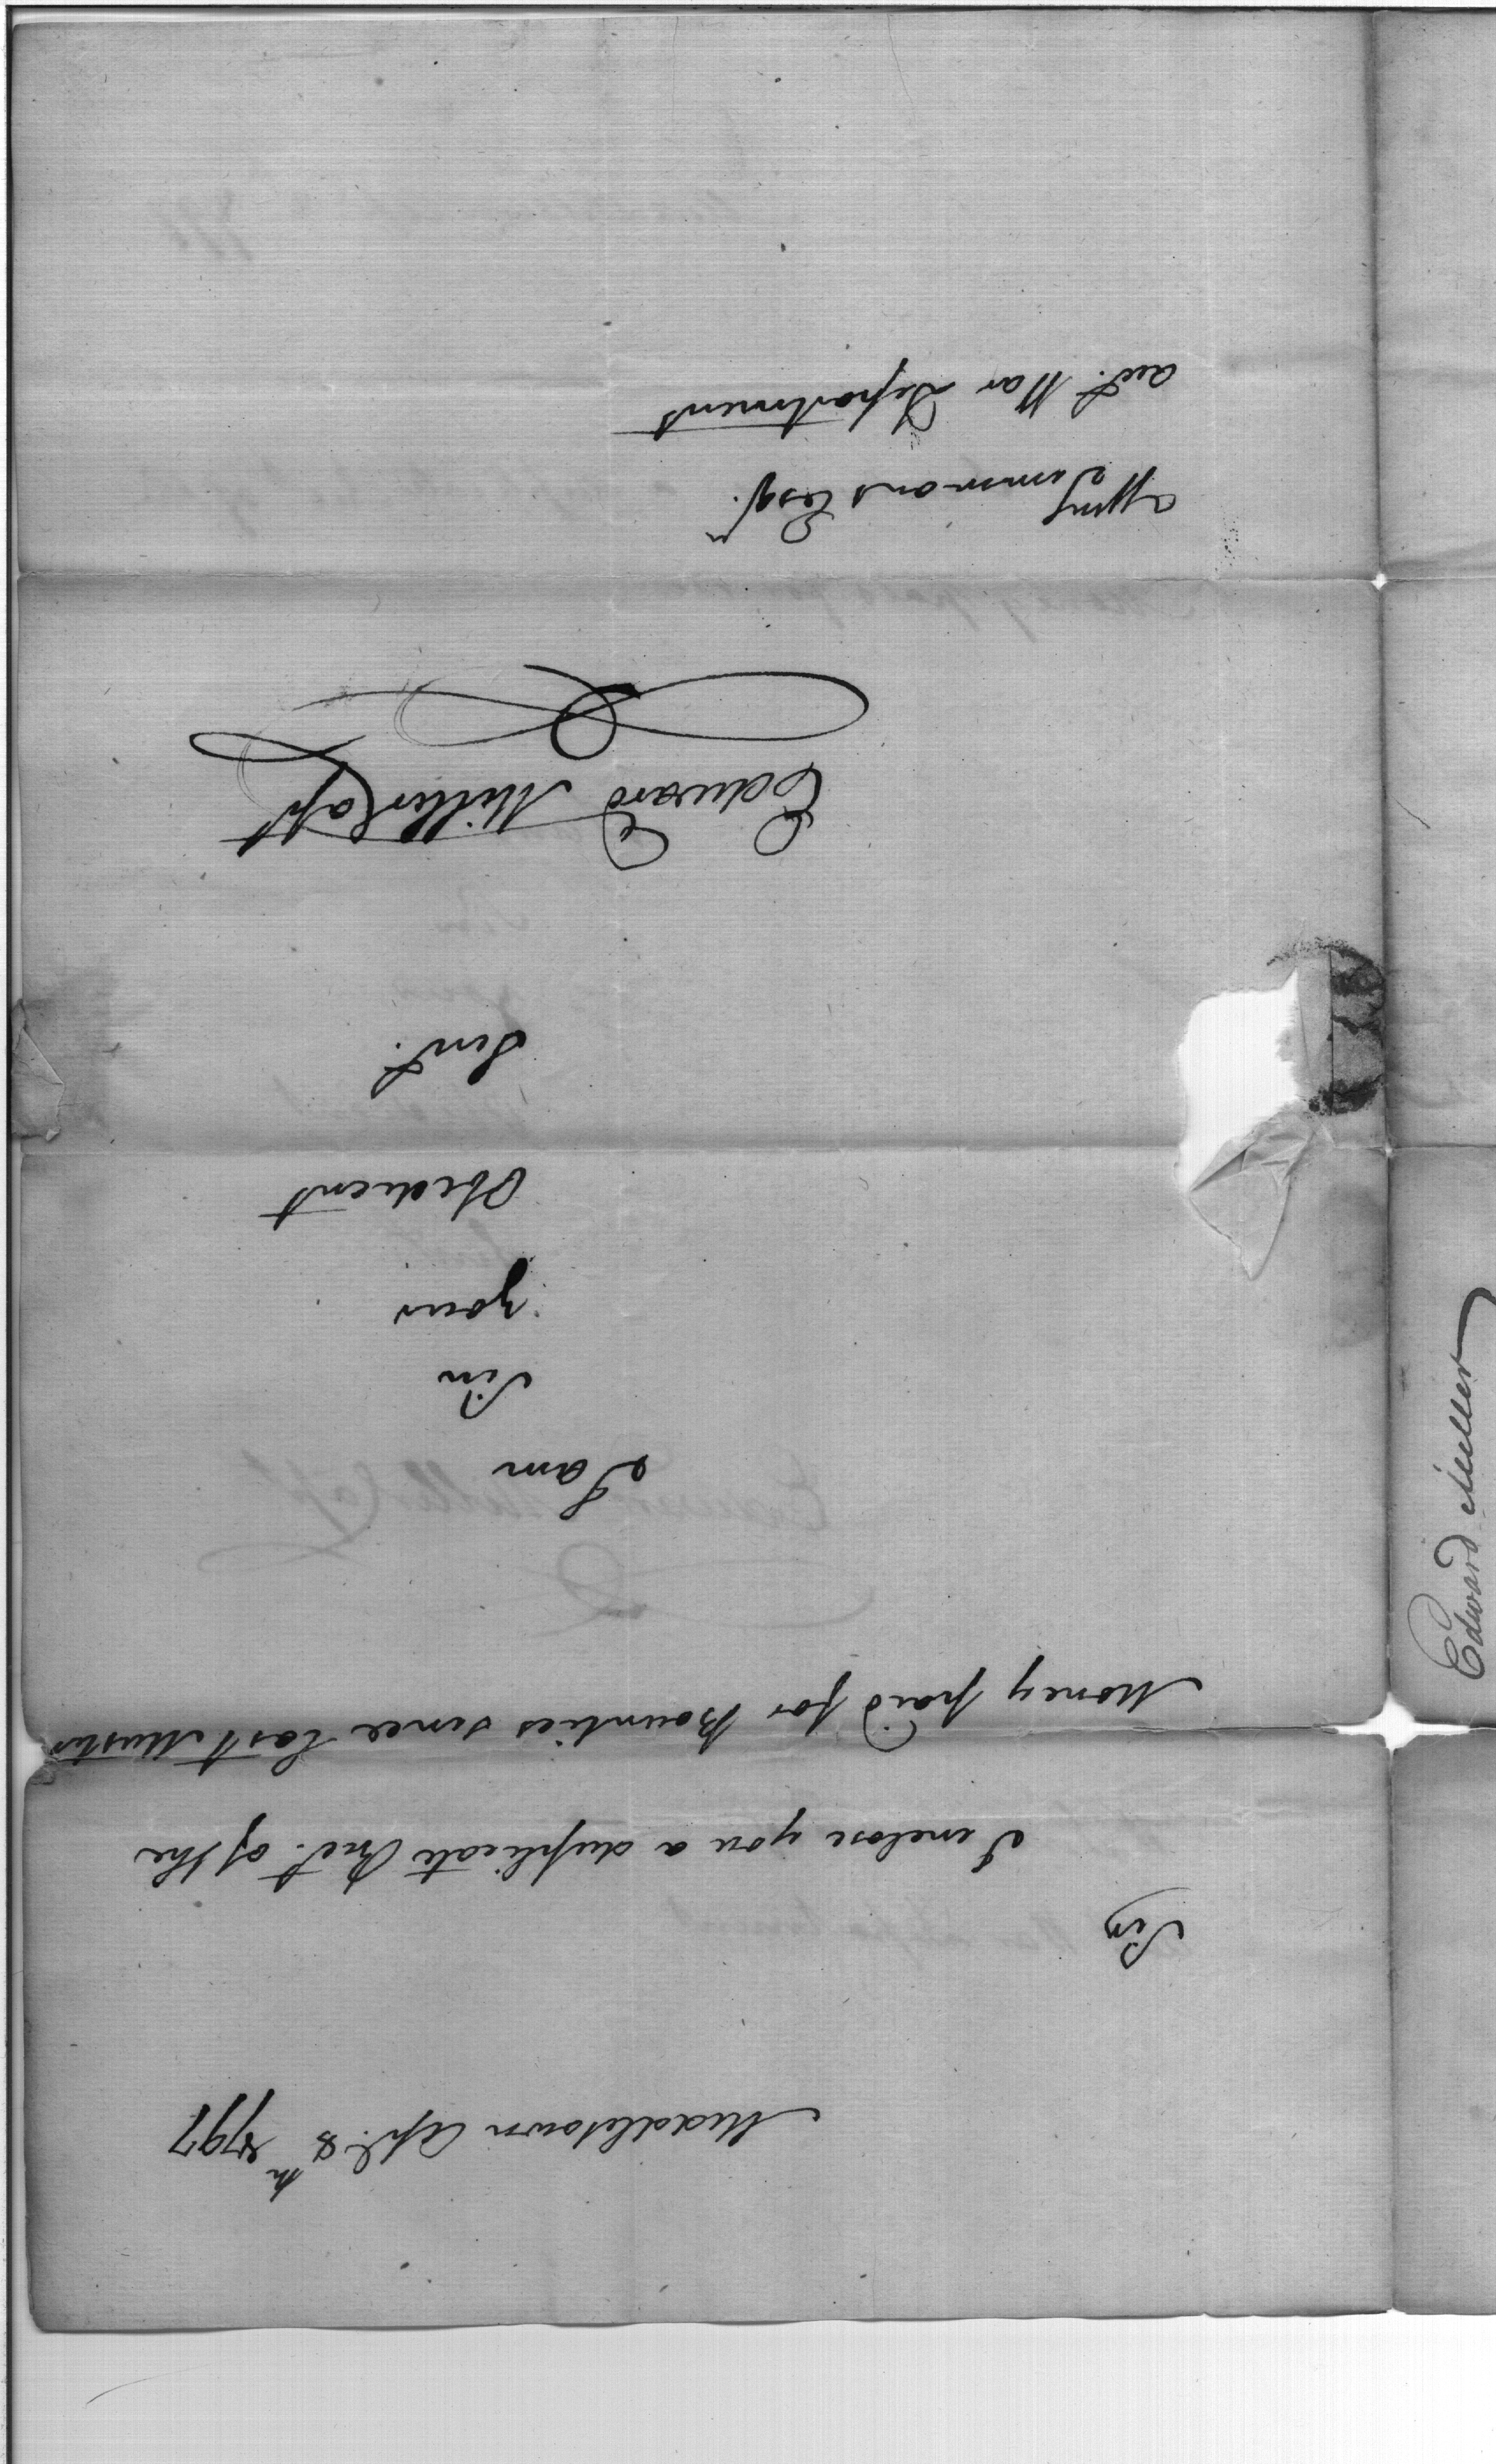 Middletown Apl. 8th 1797
Sir
I enclose you a duplicate Acct. of the
Money paid for Bounties since last Muster
I am
Sir
your
Obedient
Servt.
Edward Miller Capt
Wm Simmons Esqr.
acct. War Department
Edward Miller